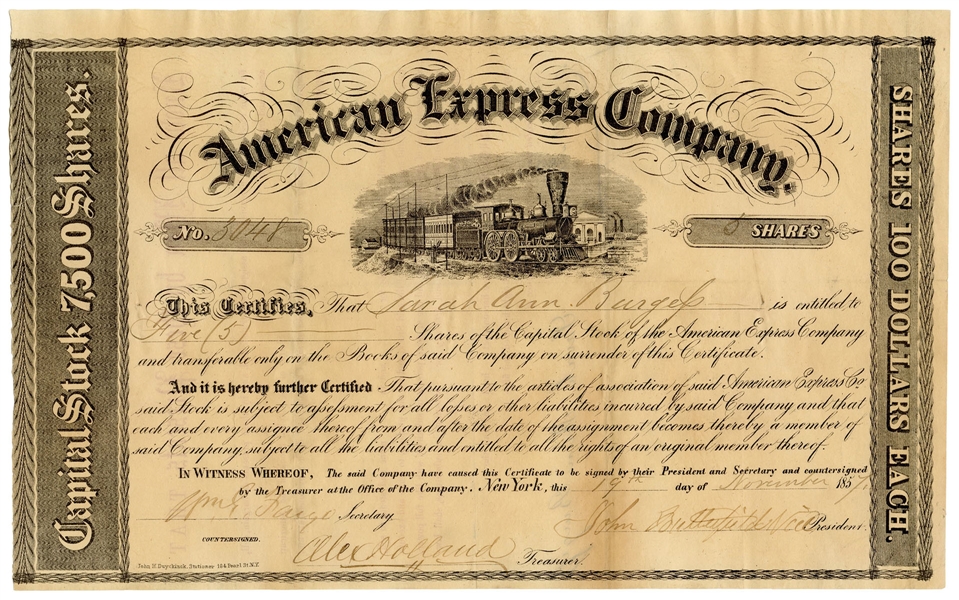 American Express Company.
Capital Stock 7,500 Shares.
SHARES 100 DOLLARS EACH.
No. 3048
5 SHARES
This Certifies, That Sarah Ann Burgess is entitled to
Five (5) Shares of the Capital Stock of the American Express Company
and transferable only on the Books of said Company on surrender of this Certificate.
And it is hereby further Certified That pursuant to the articles of association of said American Express Co
said Stock is subject to assessment for all losses or other liabilities incurred by said Company and that
each and every assignee thereof from and after the date of the assignment becomes thereby a member of
said Company, subject to all the liabilities and entitled to all the rights of an original member thereof.
IN WITNESS WHEREOF, The said Company have caused this Certificate to be signed by their President and Secretary and countersigned
by the Treasurer at the Office of the Company. New York, this 19th day of November 185
Secretary
John Butterfield President.
COUNTERSIGNED.
Alex Holland Treasurer.
John H. Duychinck, Stationer 164 Pearl St. N.Y.